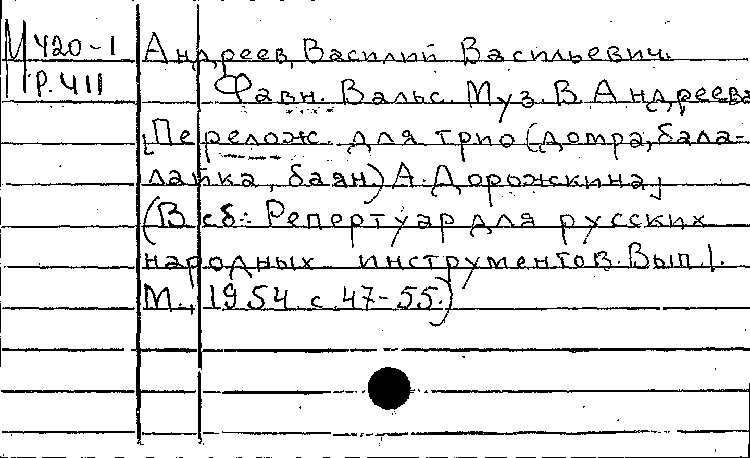 М 420-1
Р.411
Андреев, Василий Васильевич.
Фавн. Вальс. Муз. В. Андреева
[Перелож. для трио (домра, бала=
лайка, баян.) А. Дорожкина]
(В сб: Репертуар для русских
народных инструментов. Вып. 1.
М., 1954. с. 47-55.)